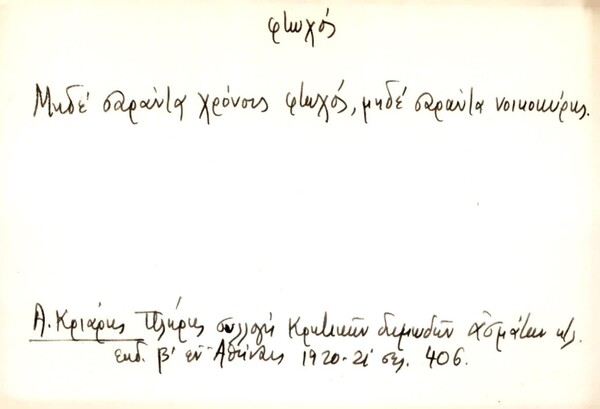 φτωχός
Μηδέ σαράντα χρόνους φτωχός, μηδέ σαράντα νοικοκύρης.
Α. Κριάρης Πλήρης συλλογή Κρητικών δημωδών ᾀσμάτων κτλ.
εκδ. β' εν Αθήναις 1920-21 σελ. 406.